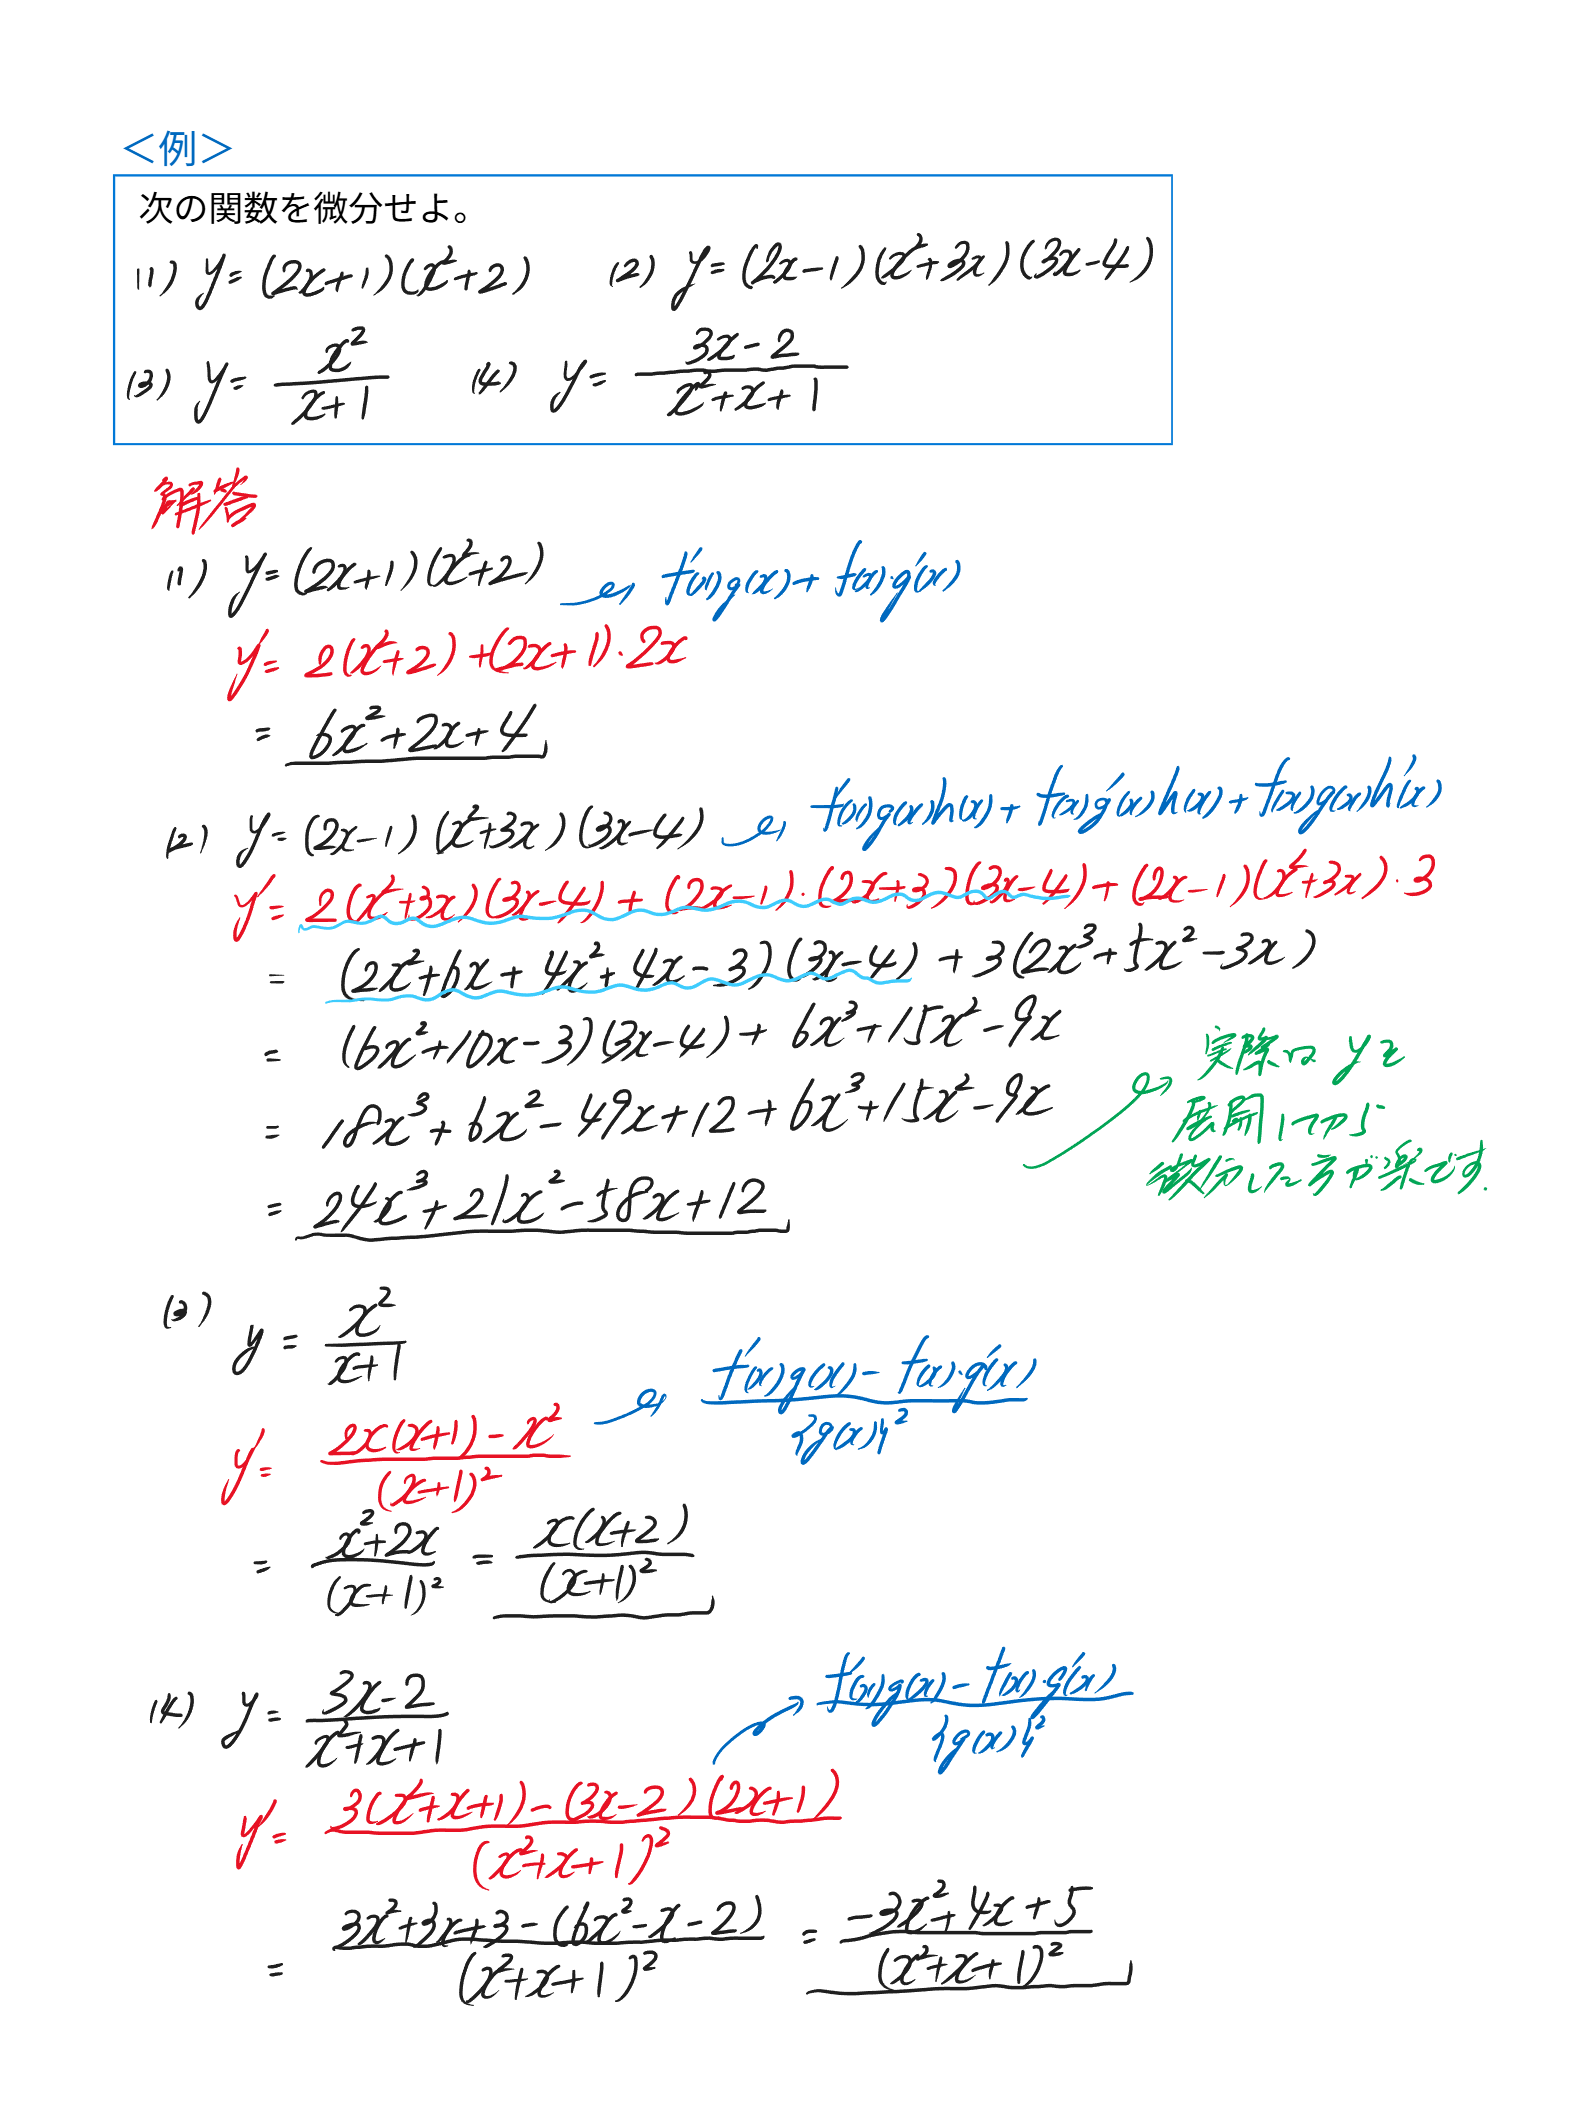 ＜例＞
次の関数を微分せよ。
(1) y=(2x+1)(x²+2) (2) y=(2x-1)(x²+3x)(3x-4)
(3) y=x²/(x+1) (4) y=(3x-2)/(x²+x+1)
解答
(1) y=(2x+1)(x²+2) f'(x)g(x)+f(x)·g'(x)
y'=2(x²+2)+(2x+1)·2x
=6x²+2x+4
(2) y=(2x-1)(x²+3x)(3x-4) f'(x)g(x)h(x)+f(x)g'(x)h(x)+f(x)g(x)h'(x)
y'=2(x²+3x)(3x-4)+(2x-1)·(2x+3)(3x-4)+(2x-1)(x²+3x)·3
=(2x²+6x+4x²+4x-3)(3x-4)+3(2x³+5x²-3x)
=(6x²+10x-3)(3x-4)+6x³+15x²-9x
=18x³+6x²-49x+12+6x³+15x²-9x
=24x³+21x²-58x+12
実際は yを
展開してから
微分した方が楽です.
(3) y=x²/(x+1)
y'=(2x(x+1)-x²)/(x+1)² (f'(x)g(x)-f(x)·g'(x))/{g(x)}²
=(x²+2x)/(x+1)²=x(x+2)/(x+1)²
(4) y=(3x-2)/(x²+x+1) (f'(x)g(x)-f(x)·g'(x))/{g(x)}²
y'=(3(x²+x+1)-(3x-2)(2x+1))/(x²+x+1)²
=(3x²+3x+3-(6x²-x-2))/(x²+x+1)²=(-3x²+4x+5)/(x²+x+1)²